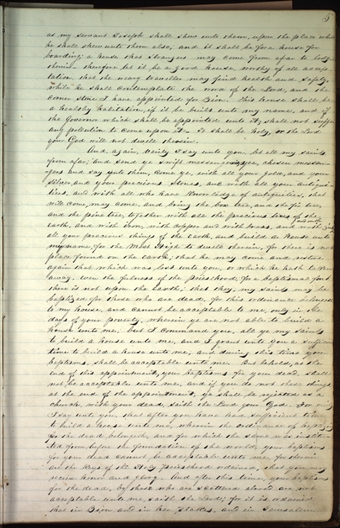 5
as my servant Joseph shall shew unto them, upon the place which
he shall shew unto them also, and it shall be for a house for
boarding, a house that strangers may come from afar to lodge
therein; therefore let it be a good house, worthy of all accep-
tation that the weary traveller may find health and safety
while he shall contemplate the word of the Lord, and the
corner stone I have appointed for Zion. This house shall be
a healthy habitation, if it be built unto my name, and if
the Governor which shall be appointed unto it, shall not suffer
any pollution to come upon it. It shall be holy, or the Lord
your God will not dwell therein.
And again, verily I say unto you, let all my saints
from afar; and send ye swift messengers, yea, chosen messen-
gers and say unto them, Come ye, with all your gold, and your
silver, and your precious stones, and with all your antiqui-
ties, and with all who have knowledge of antiquities, that
will come, may come, and bring the box tree, and the fir tree,
and the pine tree, together with all the precious trees of the
earth, and with iron, with copper and with brass, and with zinc and with
all your precious things of the earth, and build a house unto
my name, for the Most High to dwell therein, for there is not
place found on the earth, that he may come and restore
again that which was lost unto you, or which he hath taken
away, even the fulness of the Priesthood; for a baptismal font
there is not upon the earth; that they, my saints may be
baptized for those who are dead, for this ordinance belongeth
to my house, and cannot be acceptable to me, only in the
days of your poverty, wherein ye are not able to build a
house unto me. but I command you, all ye my saints
to build a house unto me, and I grant unto you a sufficient
time to build a house unto me, and during this time your
baptisms shall be acceptable unto me. But behold, at the
end of this appointment, your baptisms for your dead, shall
not be acceptable unto me, and if you do not these things
at the end of the appointment, ye shall be rejected as a
church with your dead, saith the Lord your God. For verily
I say unto you, that after you have had sufficient time
to build a house unto me, wherein the ordinance of baptizing
for the dead belongeth, and for which the same was institu-
ted from before the foundation of the world, your baptisms
for your dead cannot be acceptable unto me, for therein
are the keys of the Holy Priesthood ordained, that you may
receive honor and glory. And after this time, your baptisms
for the dead, by those who are scattered abroad are not
acceptable unto me, saith the Lord; for it is ordained
that in Zion and in her Stakes, and in Jerusalem